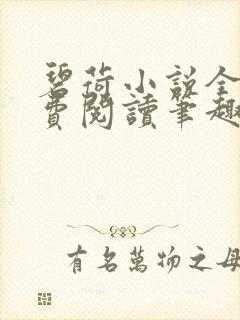 碧荷小说全
费閱讀笔趣
有名萬物之母